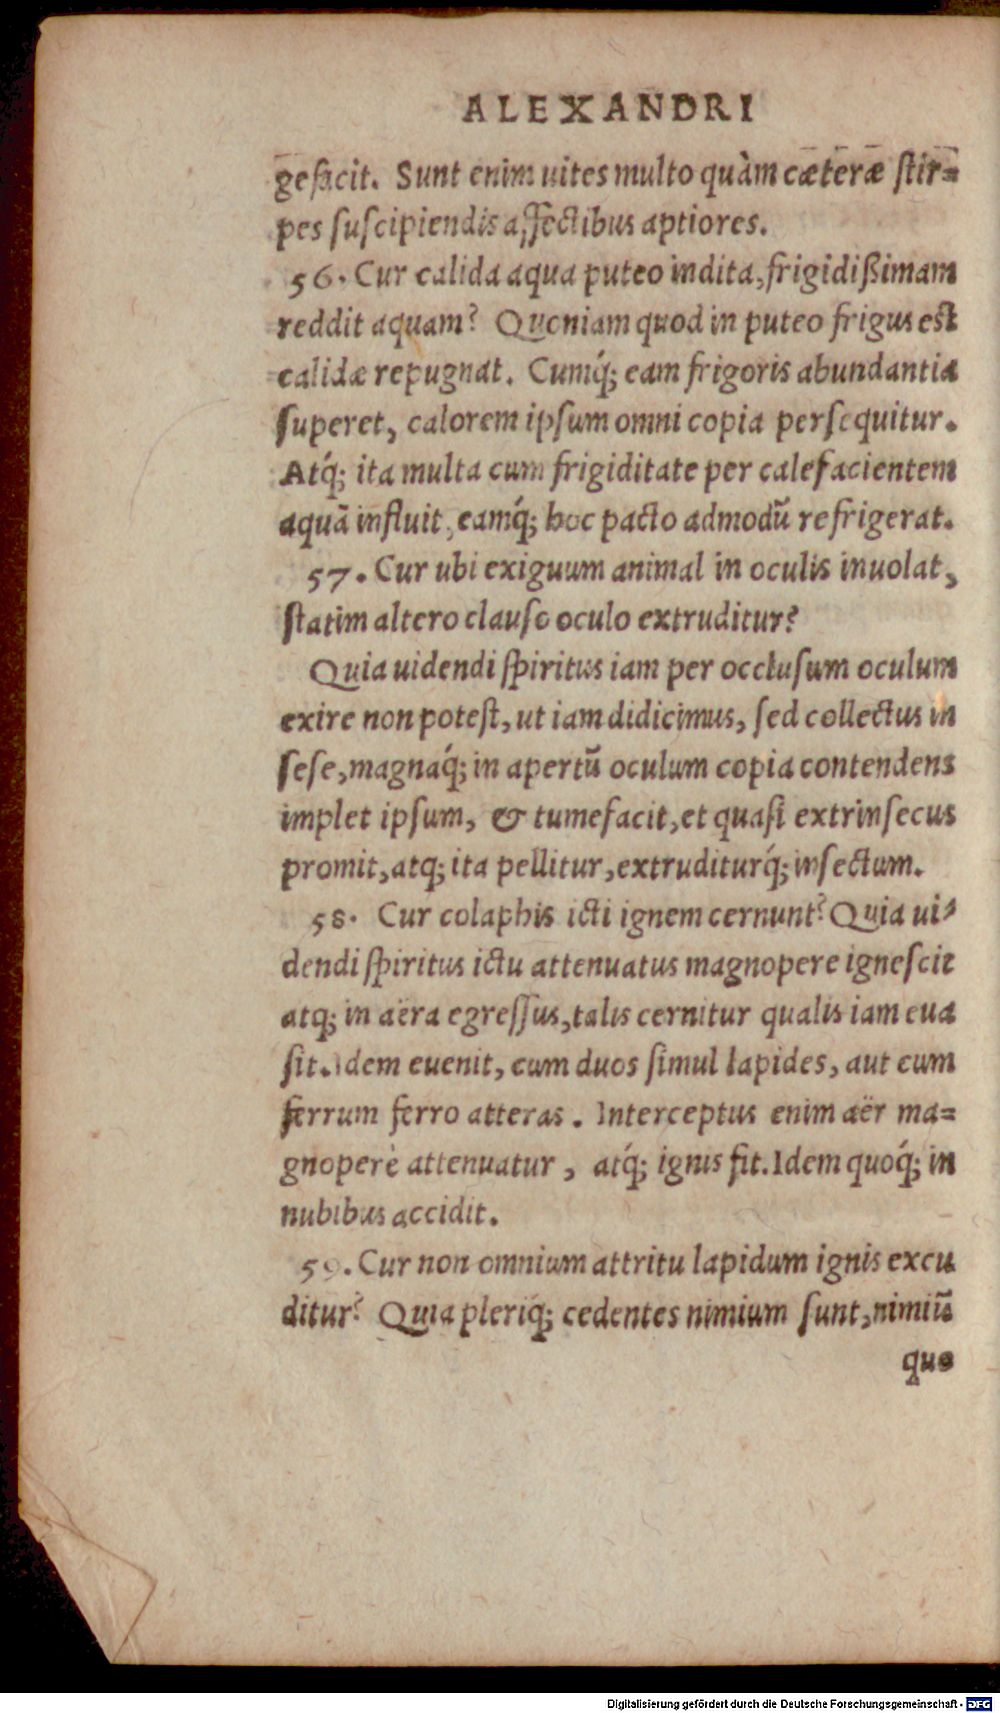 ALEXANDRI
gefacit. Sunt enim uites multo quàm cæteræ ſtir=
pes ſuſcipiendis affectibus aptiores.
56. Cur calida aqua puteo indita, frigidißimam
reddit aquam? Quoniam quod in puteo frigus est
calidæ repugnat. Cumq́; eam frigoris abundantia
ſuperet, calorem ipſum omni copia perſequitur.
Atq́; ita multa cum frigiditate per calefacientem
aquā influit, eamq́; hoc pacto admodū refrigerat.
57. Cur ubi exiguum animal in oculis inuolat,
ſtatim altero clauſo oculo extruditur?
Quia uidendi ſpiritus iam per occluſum oculum
exire non poteſt, ut iam didicimus, ſed collectus in
ſeſe, magnaq́; in apertū oculum copia contendens
implet ipſum, & tumefacit, et quaſi extrinſecus
promit, atq; ita pellitur, extruditurq́; inſectum.
58. Cur colaphis icti ignem cernunt? Quia ui=
dendi ſpiritus ictu attenuatus magnopere igneſcit
atq; in aëra egreſſus, talis cernitur qualis iam eua
ſit. Idem euenit, cum duos ſimul lapides, aut cum
ferrum ferro atteras. Interceptus enim aër ma=
gnoperè attenuatur, atq́; ignis fit. Idem quoq́; in
nubibus accidit.
59. Cur non omnium attritu lapidum ignis excu
ditur? Quia pleriq́; cedentes nimium ſunt, nimiū
que
Digitalisierung gefördert durch die Deutsche Forschungsgemeinschaft - DFG